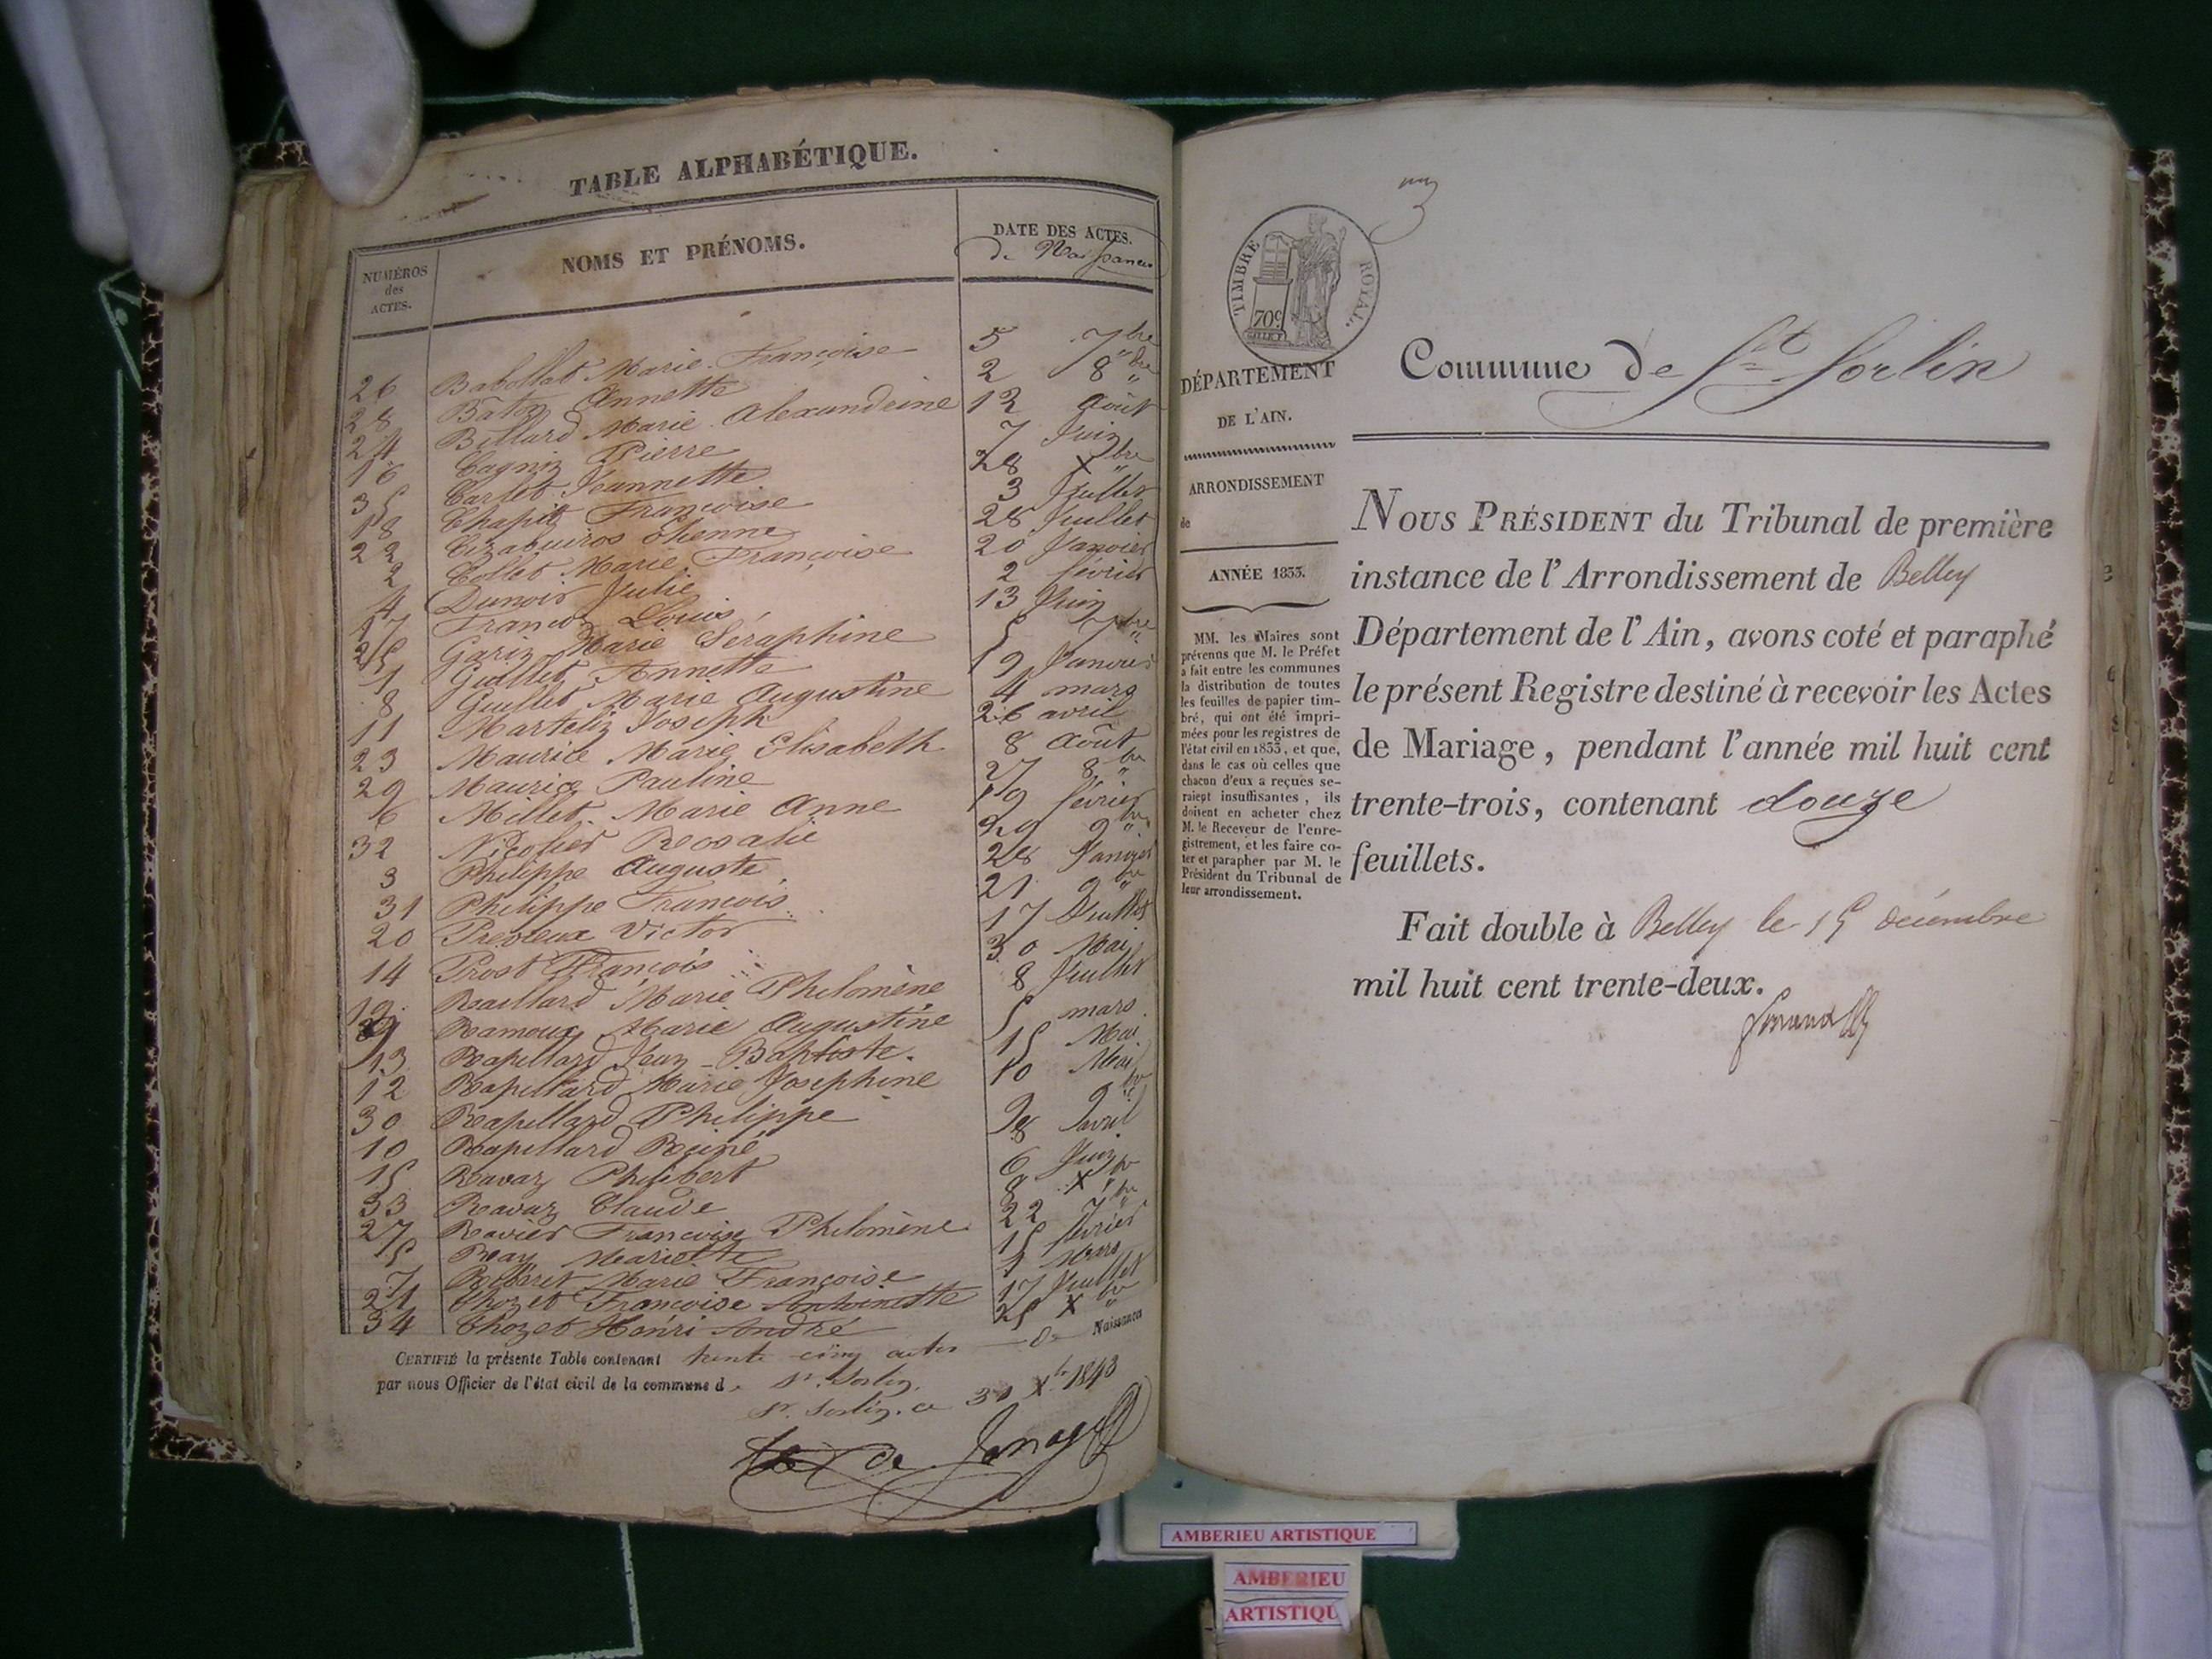 TABLE ALPHABÉTIQUE.
NUMÉROS
des
ACTES.
NOMS ET PRÉNOMS.
DATE DES ACTES.
de Naissances
26 Babollat Marie Françoise 5 7bre
28 Annette 2 8bre
24 Billard Marie Alexandrine 12 Août
16 Pierre 7 Juin
35 Carlet Jeannette 28 Xbre
18 Françoise 3 Juillet
22 Etienne 28 Juillet
2 Collet Marie Françoise 20 Janvier
4 Dunoir Julie 2 février
17 Louis 13 Juin
25 Garin Marie Séraphine 5 7bre
1 Guillet Annette 19 Janvier
8 Guillet Marie Augustine 4 mars
11 Martelin Joseph 26 avril
23 Maurice Marie Elisabeth 8 Août
29 Maurice Pauline 27 8bre
6 Millet Marie Anne 19 février
32 Nicolier Rosalie 29 9bre
3 Philippe Auguste 28 Janvier
31 Philippe François 21 9bre
20 Victor 17 Juillet
14 Prost François 30 Mai
19 Raillard Marie Philomène 8 Juillet
9 Ramoux Marie Augustine 5 mars
13 Rapillard Jean-Baptiste 15 Mai
12 Rapillard Marie Josephine 10 Mai
30 Rapillard Philippe 9bre
10 Rapillard Reine 8 avril
15 Ravaz Philibert 6 Juin
33 Ravaz Claude 8 Xbre
27 Ravier Françoise Philomène 22 7bre
5 Ray Mariette 15 février
7 Marie Françoise 1 Mars
21 Thozet Françoise Antoinette 17 Juillet
34 Thozet Henri André 25 Xbre
CERTIFIÉ la présente Table contenant trente cinq actes de Naissances
par nous Officier de l'état civil de la commune d St. Sorlin.
St. Sorlin, ce 31 Xbre 1843
TIMBRE ROYAL.
70c
DÉPARTEMENT
DE L'AIN.
ARRONDISSEMENT
de
ANNÉE 1833.
MM. les Maires sont
prévenus que M. le Préfet
a fait entre les communes
la distribution de toutes
les feuilles de papier tim-
bré, qui ont été impri-
mées pour les registres de
l'état civil en 1833, et que,
dans le cas où celles que
chacun d'eux a reçues se-
raient insuffisantes, ils
doivent en acheter chez
M. le Receveur de l'enre-
gistrement, et les faire co-
ter et parapher par M. le
Président du Tribunal de
leur arrondissement.
Commune de St. Sorlin
NOUS PRÉSIDENT du Tribunal de première
instance de l'Arrondissement de Belley
Département de l'Ain, avons coté et paraphé
le présent Registre destiné à recevoir les Actes
de Mariage, pendant l'année mil huit cent
trente-trois, contenant douze
feuillets.
Fait double à Belley le 15 décembre
mil huit cent trente-deux.
AMBERIEU ARTISTIQUE
AMBERIEU
ARTISTIQU